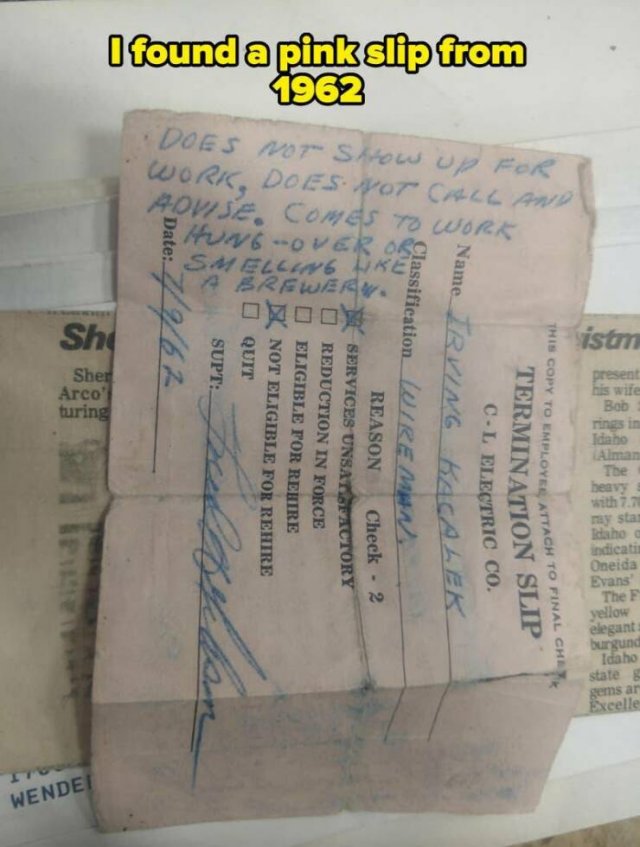 I found a pink slip from
1962
DOES NOT SHOW UP FOR
WORK, DOES NOT CALL AND
ADVISE. COMES TO WORK
HUNG-OVER OR
SMELLING LIKE
A BREWERY.
THIS COPY TO EMPLOYEE ATTACH TO FINAL CHECK
TERMINATION SLIP
C-L ELECTRIC CO.
Name IRVING KACALEK
Classification WIREMAN.
REASON Check - 2
☒ SERVICES UNSATISFACTORY
☐ REDUCTION IN FORCE
☐ ELIGIBLE FOR REHIRE
☒ NOT ELIGIBLE FOR REHIRE
☐ QUIT
SUPT:
Date: 7/9/62
She
Sher
Arco's
turing
istm
present
his wife
Bob
rings in
Idaho
(Alman
The
heavy
with 7.7
may star
Idaho o
indicati
Oneida
Evans'
The F
yellow
elegant
burgund
Idaho
state g
gems ar
Excelle
WENDE